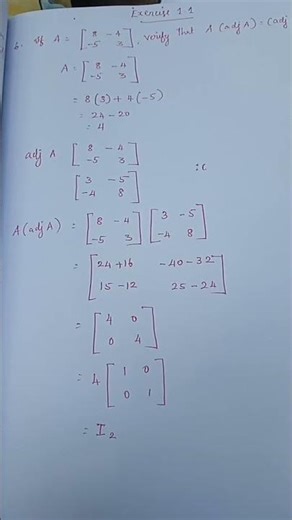 Exercise 1.1
6. If A = [8 -4 -5 3], verify that A (adj A) = (adj
A = [8 -4 -5 3]
= 8(3) + 4(-5)
= 24 - 20
= 4
adj A [8 -4 -5 3]
[3 -5 -4 8]
A(adj A) = [8 -4 -5 3] [3 -5 -4 8]
= [24+16 -40-32 15-12 25-24]
= [4 0 0 4]
= 4 [1 0 0 1]
= I₂